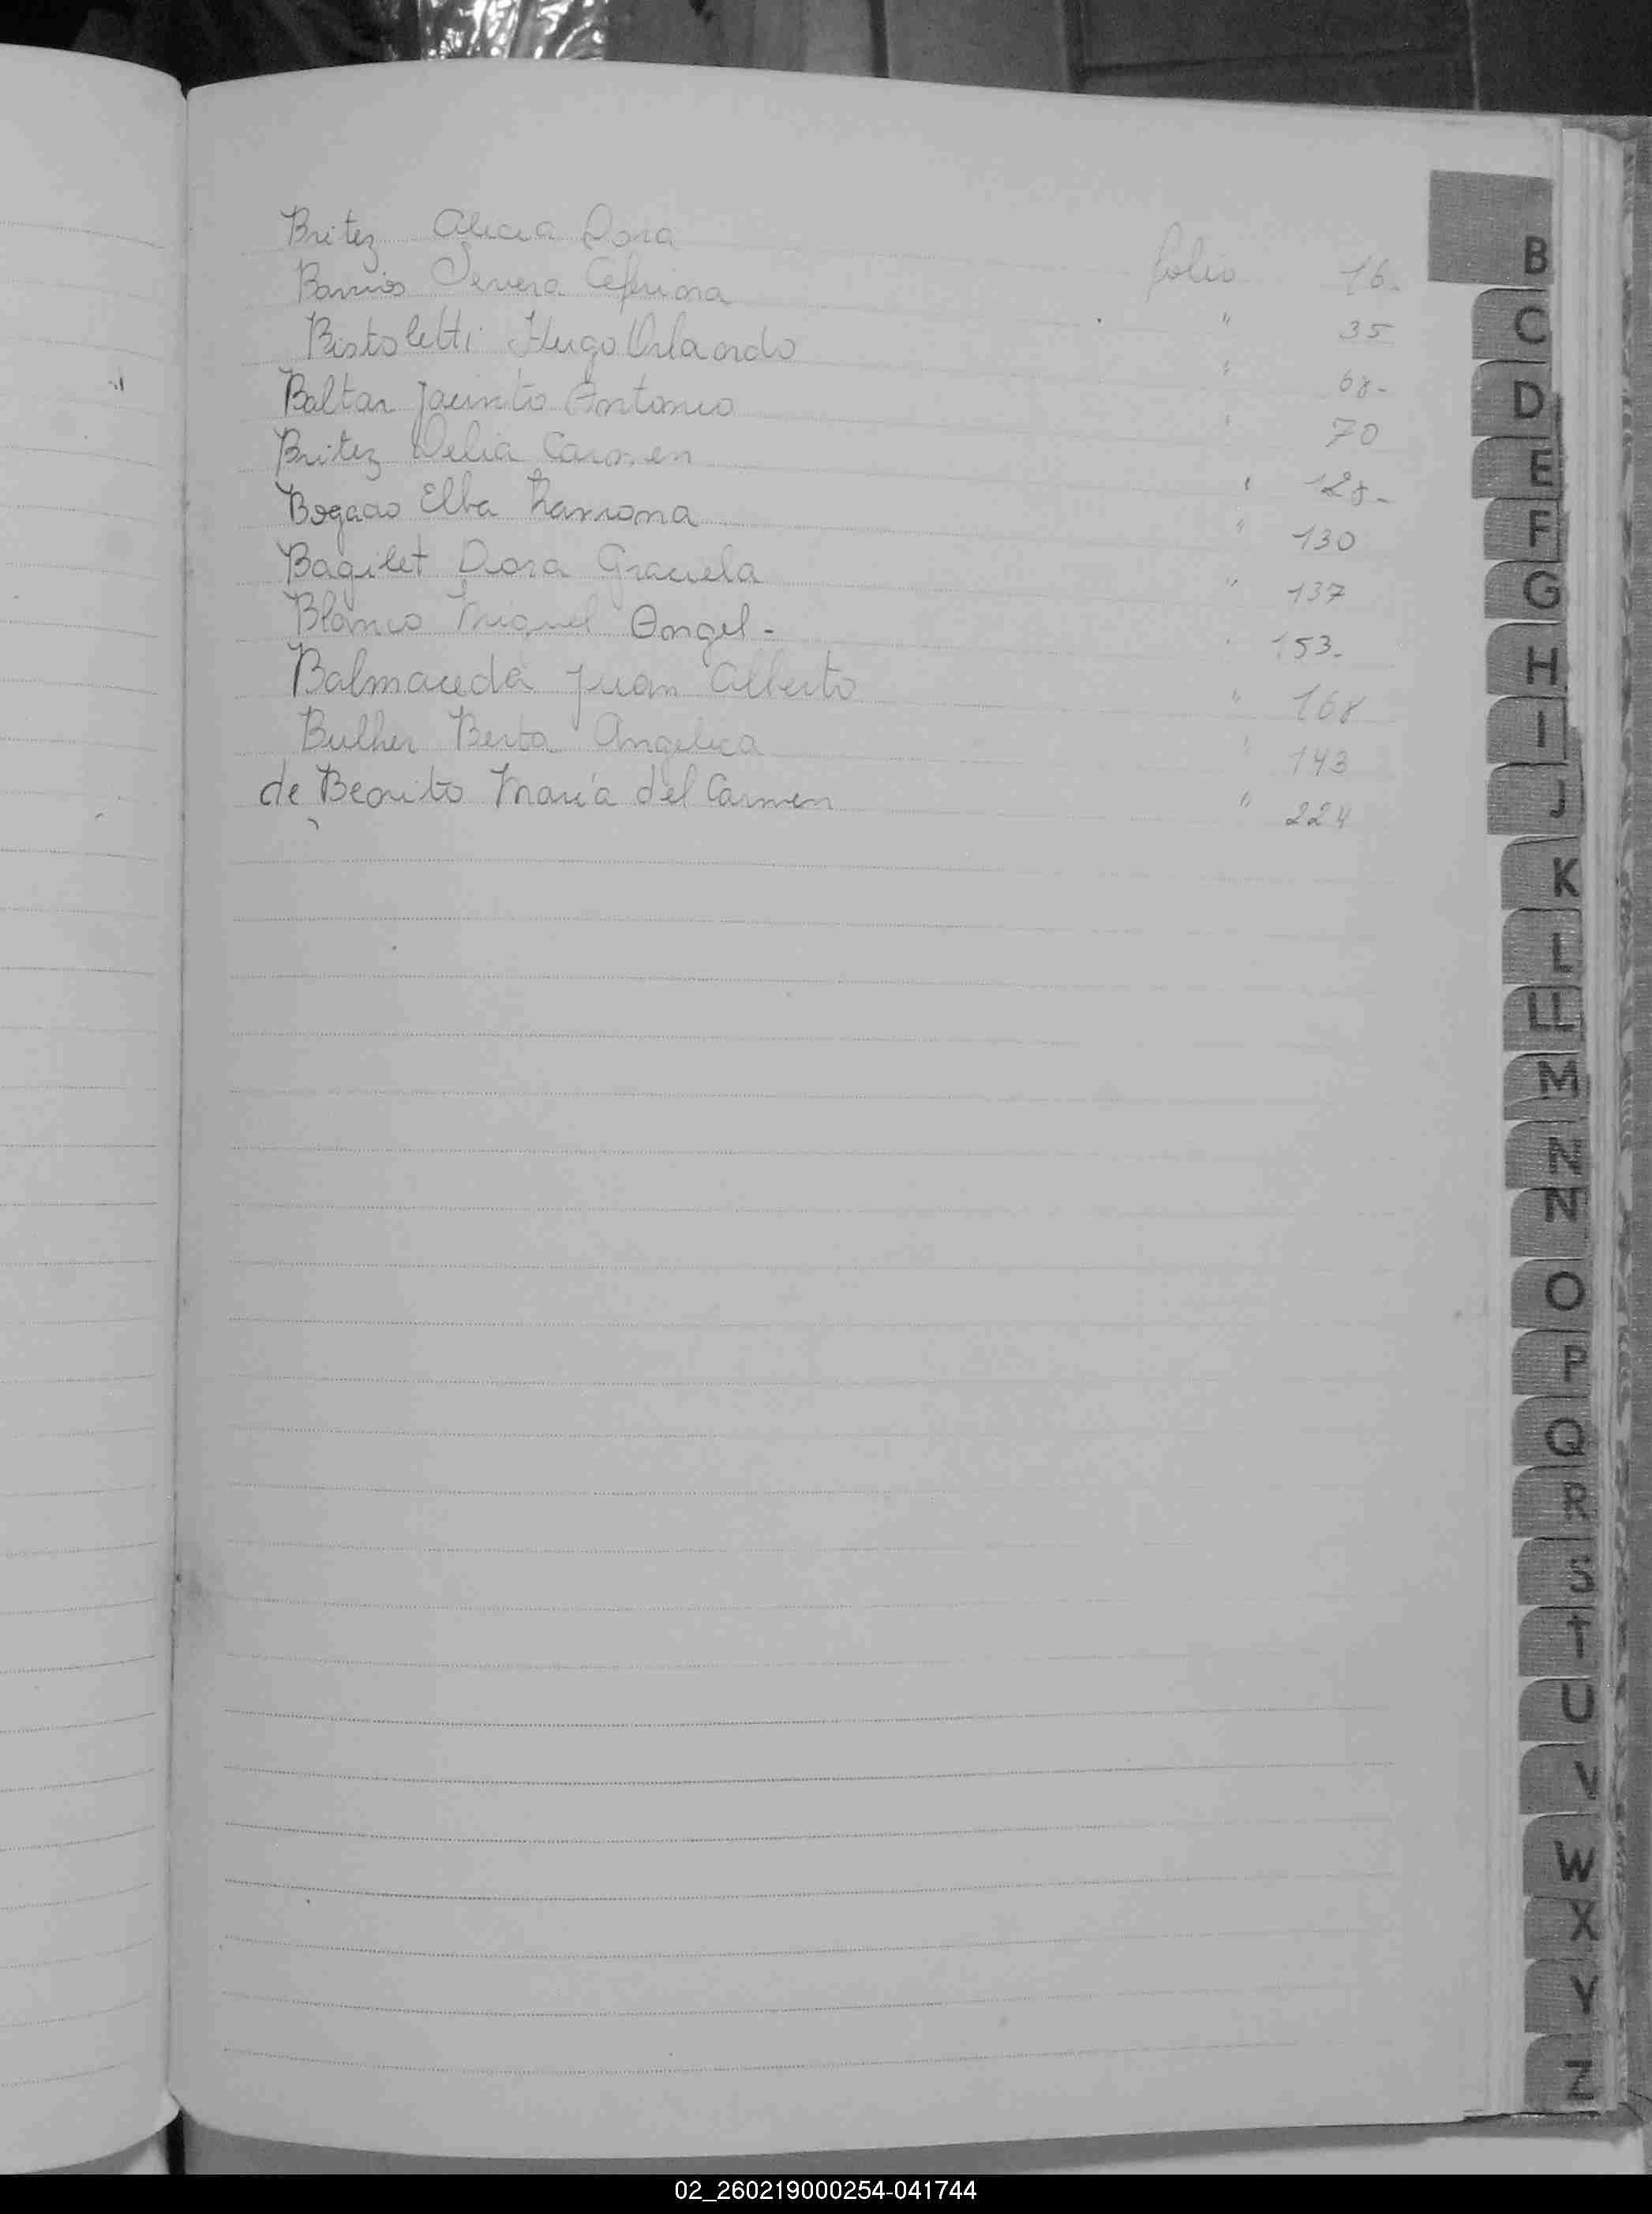 Britez Alicia Dora folio 16.
Barrios Severa Ceferina " 35
Bistoletti Hugo Orlando " 68-
Baltar Jacinto Antonio " 70
Britez Delia Carmen " 128-
Bogado Elba Ramona " 130
Bagilet Dora Graciela " 137
Blanco Miguel Angel - " 153.
Balmaceda Juan Alberto " 168
Bulher Berta Angelica " 143
de Benito María del Carmen " 224
B
C
D
E
F
G
H
I
J
K
L
LL
M
N
N
O
P
Q
R
S
T
U
V
W
X
Y
Z
02_260219000254-041744